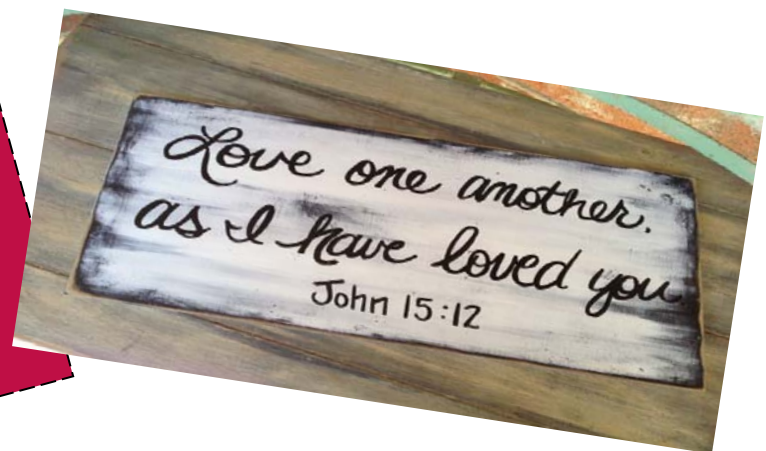 Love one another.
as I have loved you
John 15:12